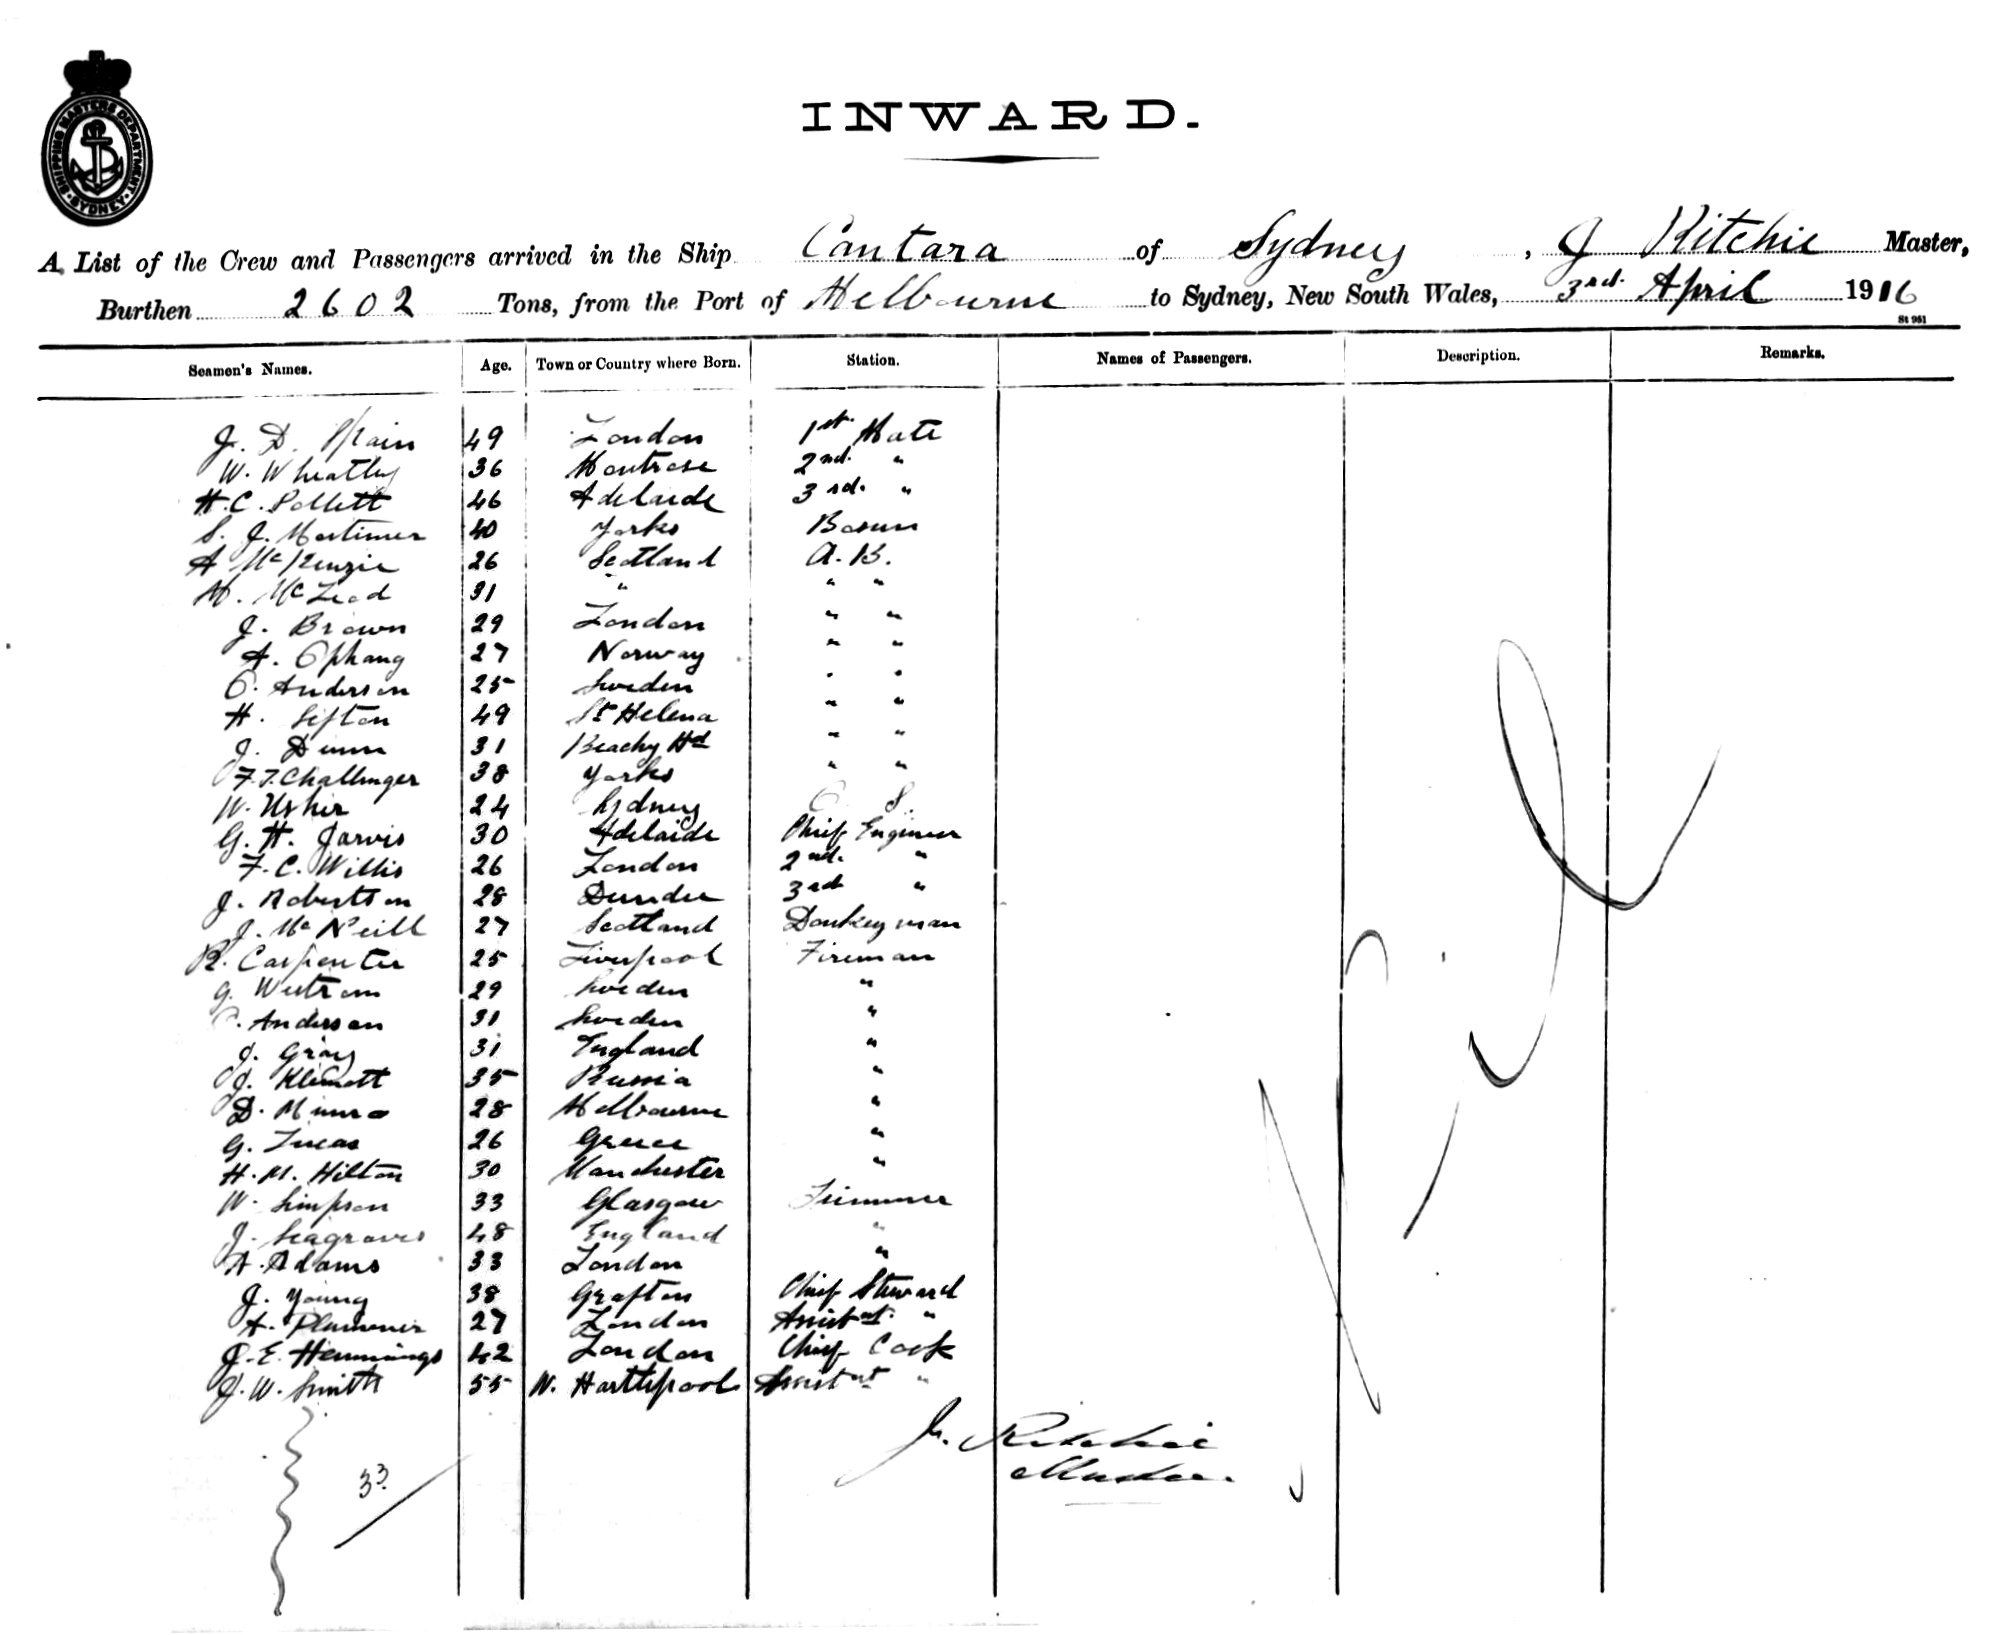 SHIPPING MASTERS DEPARTMENT · SYDNEY ·
INWARD.
A List of the Crew and Passengers arrived in the Ship Cantara of Sydney, J Ritchie Master,
Burthen 2602 Tons, from the Port of Melbourne to Sydney, New South Wales, 3rd April 1916
St 951
Seamen's Names. Age. Town or Country where Born. Station. Names of Passengers. Description. Remarks.
J. D. Spain 49 London 1st Mate
W. Wheatley 36 Montrose 2nd. "
H. C. Pollett 46 Adelaide 3rd. "
S. J. Mortimer 40 Yorks Bosun
A McKenzie 26 Scotland A. B.
M. McLeod 31 " " "
J. Brown 29 London " "
A. Ophang 27 Norway " "
O. Anderson 25 Sweden " "
H. Sefton 49 St Helena " "
J. Dunn 31 Beachy Hd " "
F. T. Challinger 38 Yorks " "
W. Usher 24 Sydney O. S.
G. H. Jarvis 30 Adelaide Chief Engineer
F. C. Willis 26 London 2nd. "
J. Robertson 28 Dundee 3rd "
J. McNeill 27 Scotland Donkeyman
R. Carpenter 25 Liverpool Fireman
G. Westrom 29 Sweden "
Anderson 31 Sweden "
J. Gray 31 England "
J. Klematt 35 Russia "
D. Munro 28 Melbourne "
G. Lucas 26 Greece "
H. M. Hilton 30 Manchester "
W. Simpson 33 Glasgow Trimmer
J. Seagraves 48 England "
A. Adams 33 London "
J. Young 38 Grafton Chief Steward
A. Plummer 27 London Assistant "
J. E. Hemmings 42 London Chief Cook
J. W. Smith 55 W. Hartlepool Assistant "
J. Ritchie
Master.
33
Nil